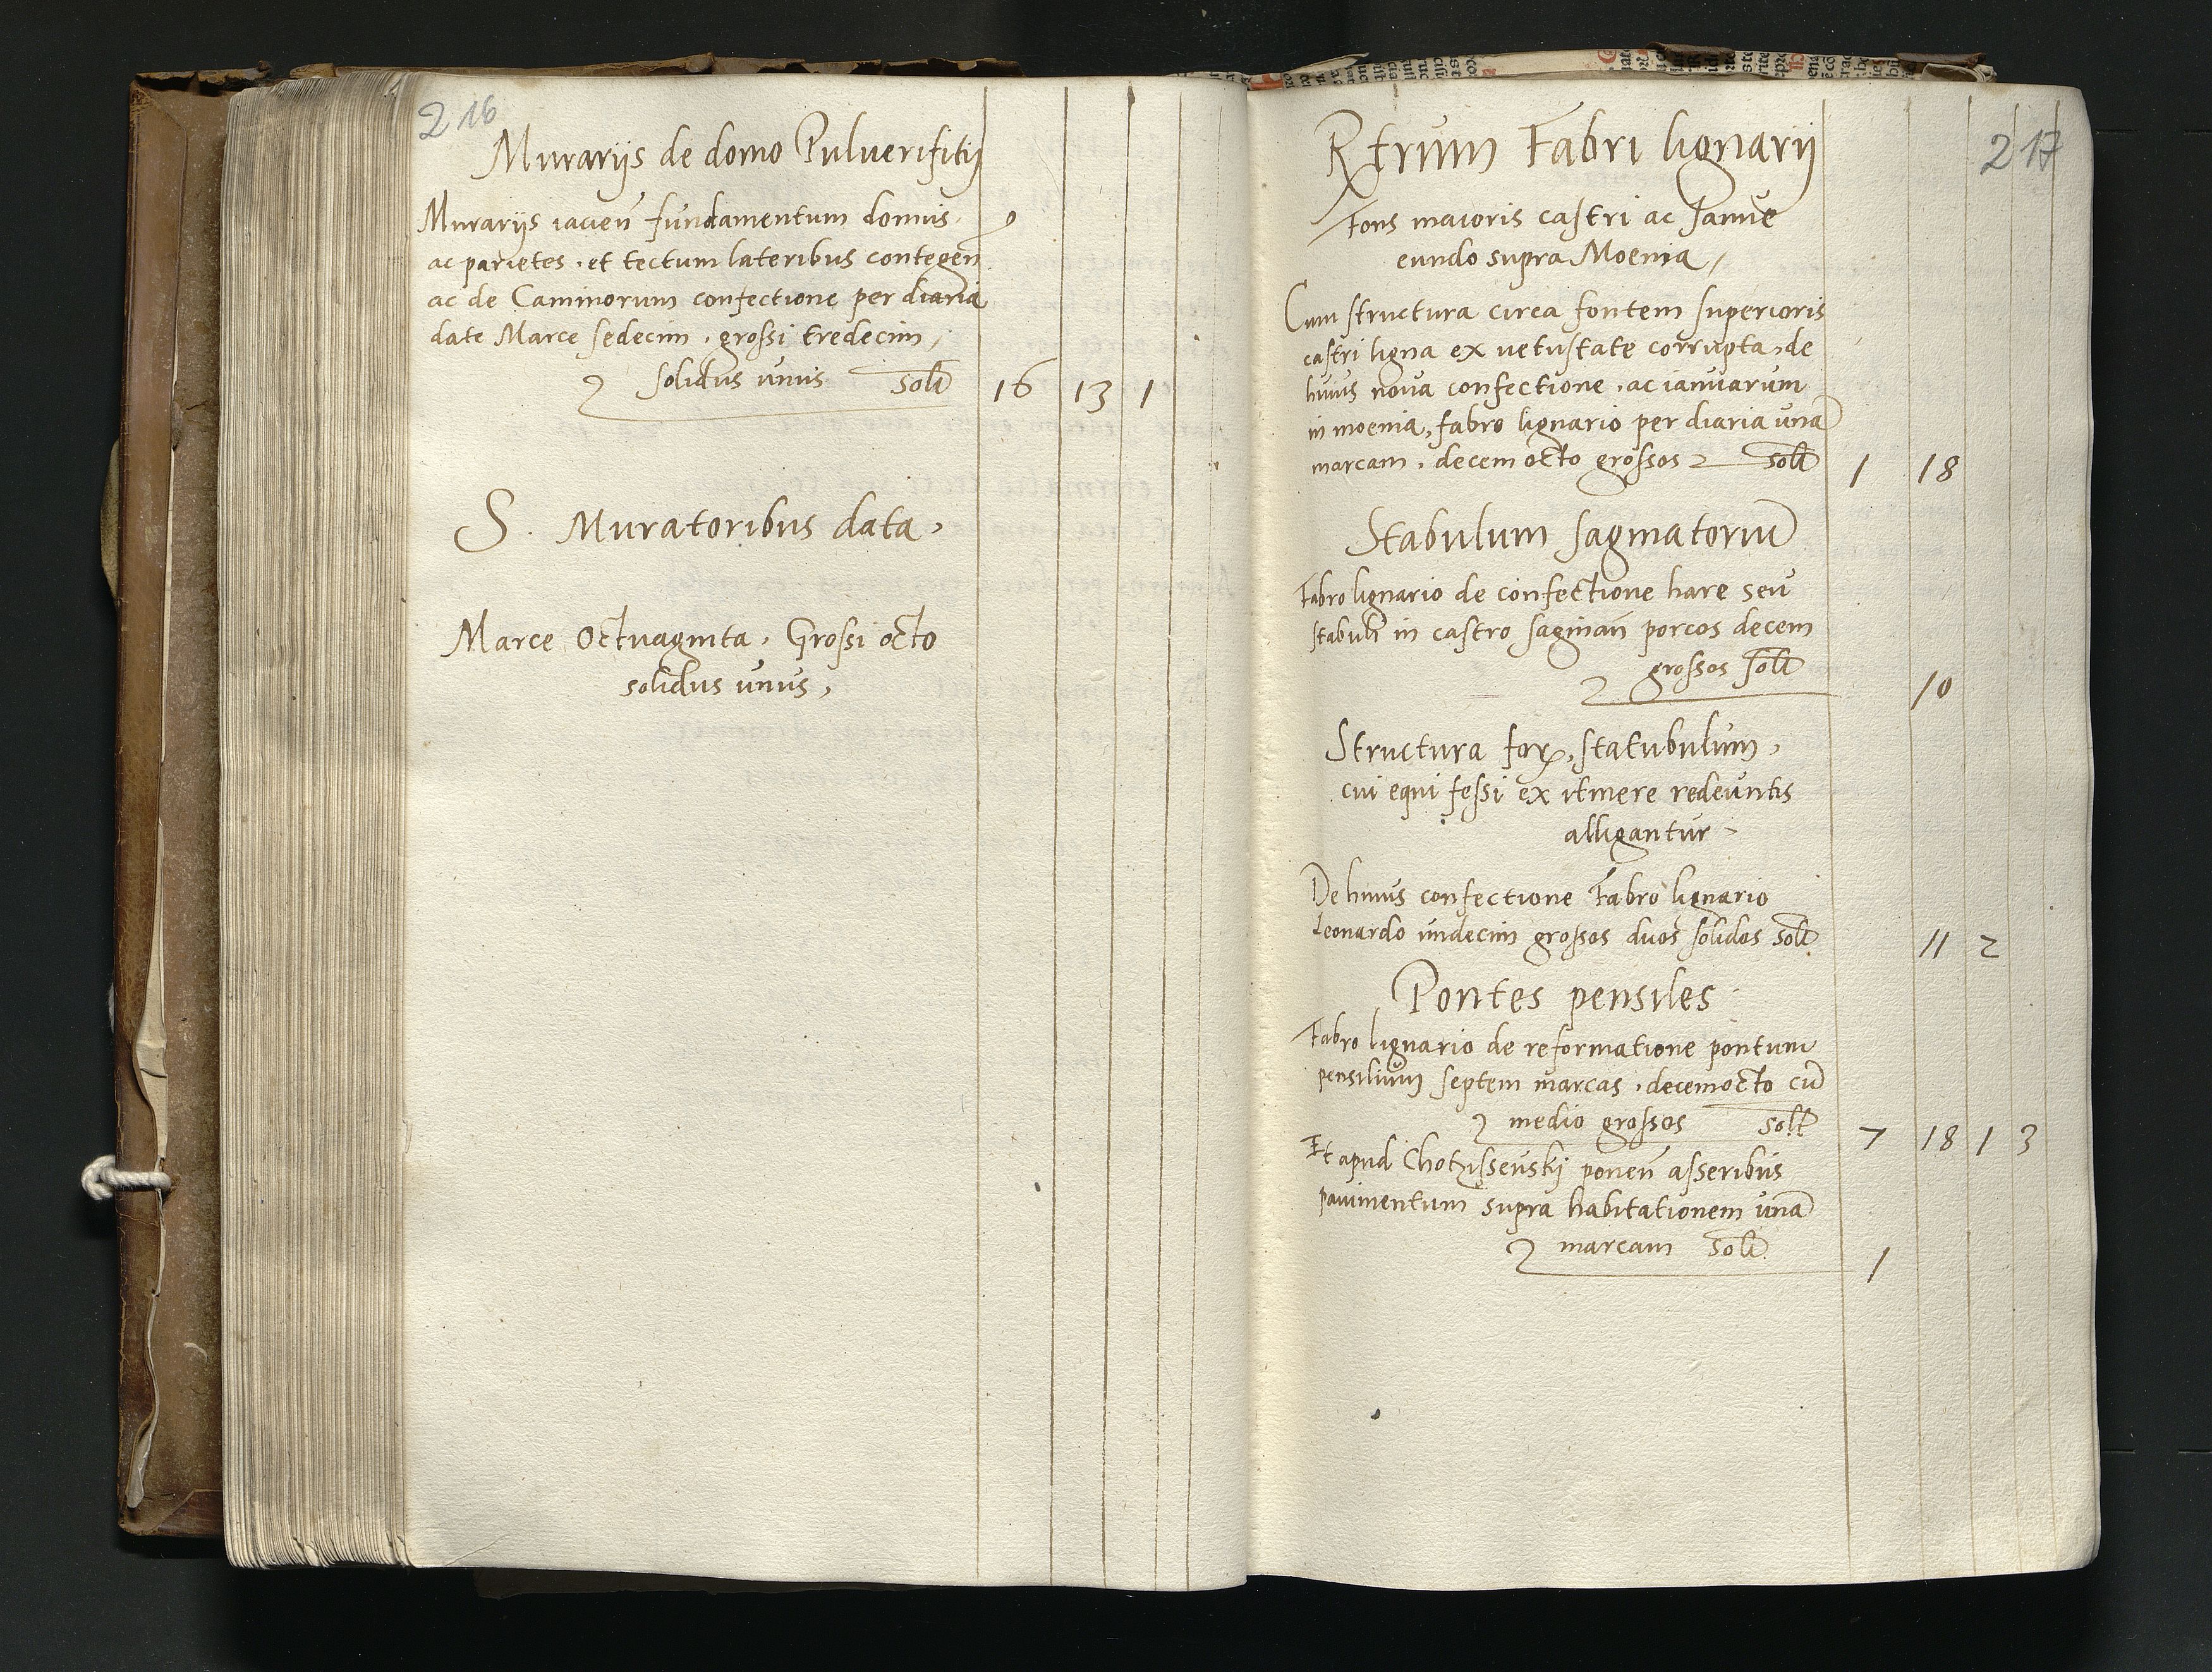 216
Murarijs de domo Puluerifitij
Murarijs iacien̄ fundamentum domus. 0
ac parietes. et tectum lateribus contegen̄
ac de Caminorum confectione per diaria
date Marce sedecim. grossi tredecim,
solidus unus solt 16 13 1
S. Muratoribus data,
Marce Octuaginta, Grossi octo
solidus unus,
217
Fabri lignarij
Fons maioris castri ac Janue
eundo supra Moenia,
Cum structura circa fontem superioris
castri ligna ex uetustate corrupta, de
huius noua confectione, ac ianuarum
in moenia, fabro lignario per diaria unā
marcam, decem octo grossos solt 1 18
Stabulum sagmatoriū
Fabro lignario de confectione hare seu
stabuli in castro saginan̄ porcos decem
grossos solt 10
Structura for, statubulum,
cui equi fessi ex itinere redeuntis
alligantur
De huius confectione Fabro lignario
Leonardo undecim grossos duos solidos solt 11 2
Pontes pensiles
Fabro lignario de reformatione pontum
pensilium septem marcas, decemocto cū
medio grossos solt 7 18 1 3
Et apud Chotzisseuskij ponen̄ asseribus
pauimentum supra habitationem unā
marcam solt 1